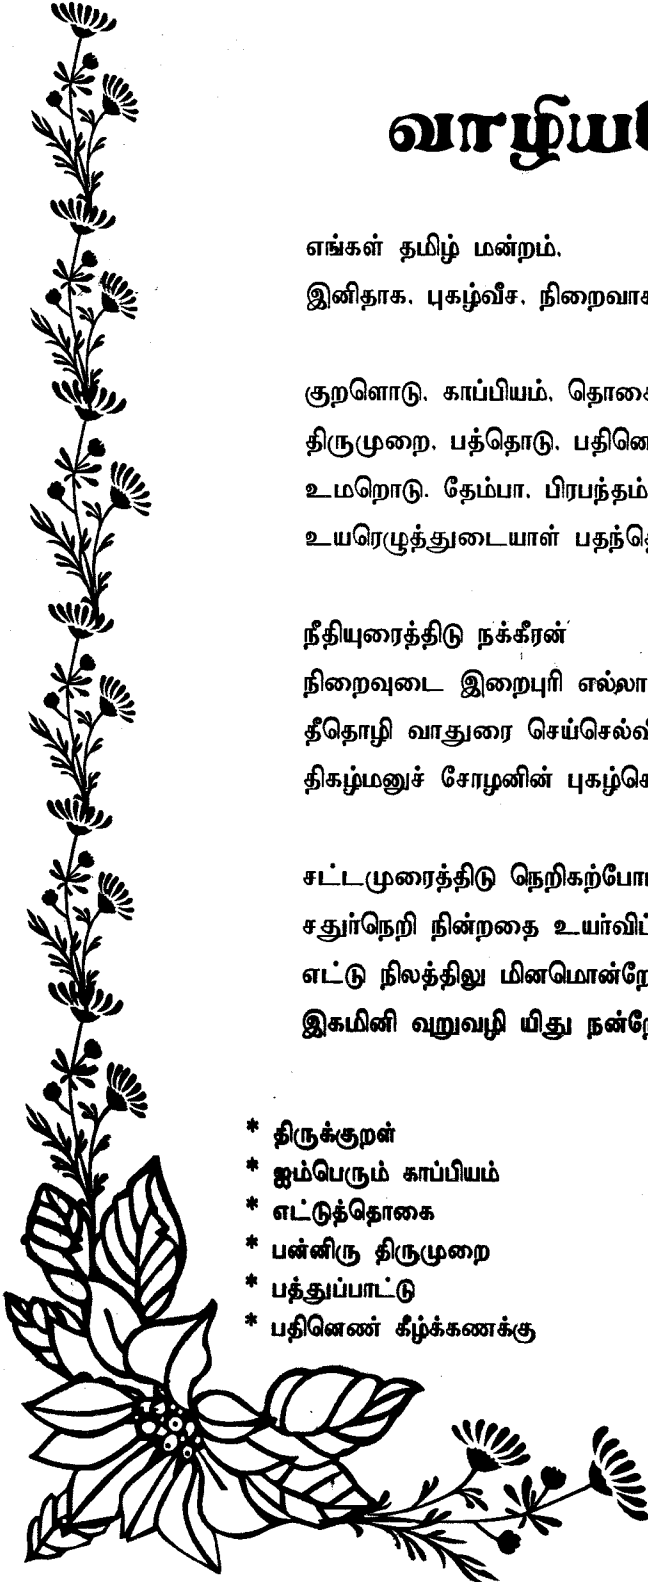 வாழிய
எங்கள் தமிழ் மன்றம்.
இனிதாக. புகழ்வீச. நிறைவாக
குறளொடு. காப்பியம். தொகை
திருமுறை. பத்தொடு. பதினெ
உமறொடு. தேம்பா. பிரபந்தம்
உயரெழுத்துடையாள் பதந்தெ
நீதியுரைத்திடு நக்கீரன்
நிறைவுடை இறைபுரி எல்லா
தீதொழி வாதுரை செய்செல்வி
திகழ்மனுச் சோழனின் புகழ்செ
சட்டமுரைத்திடு நெறிகற்போ
சதுர்நெறி நின்றதை உயர்விப்
எட்டு நிலத்திலு மினமொன்றே
இகமினி வுறுவழி யிது நன்றே
* திருக்குறள்
* ஐம்பெரும் காப்பியம்
* எட்டுத்தொகை
* பன்னிரு திருமுறை
* பத்துப்பாட்டு
* பதினெண் கீழ்க்கணக்கு